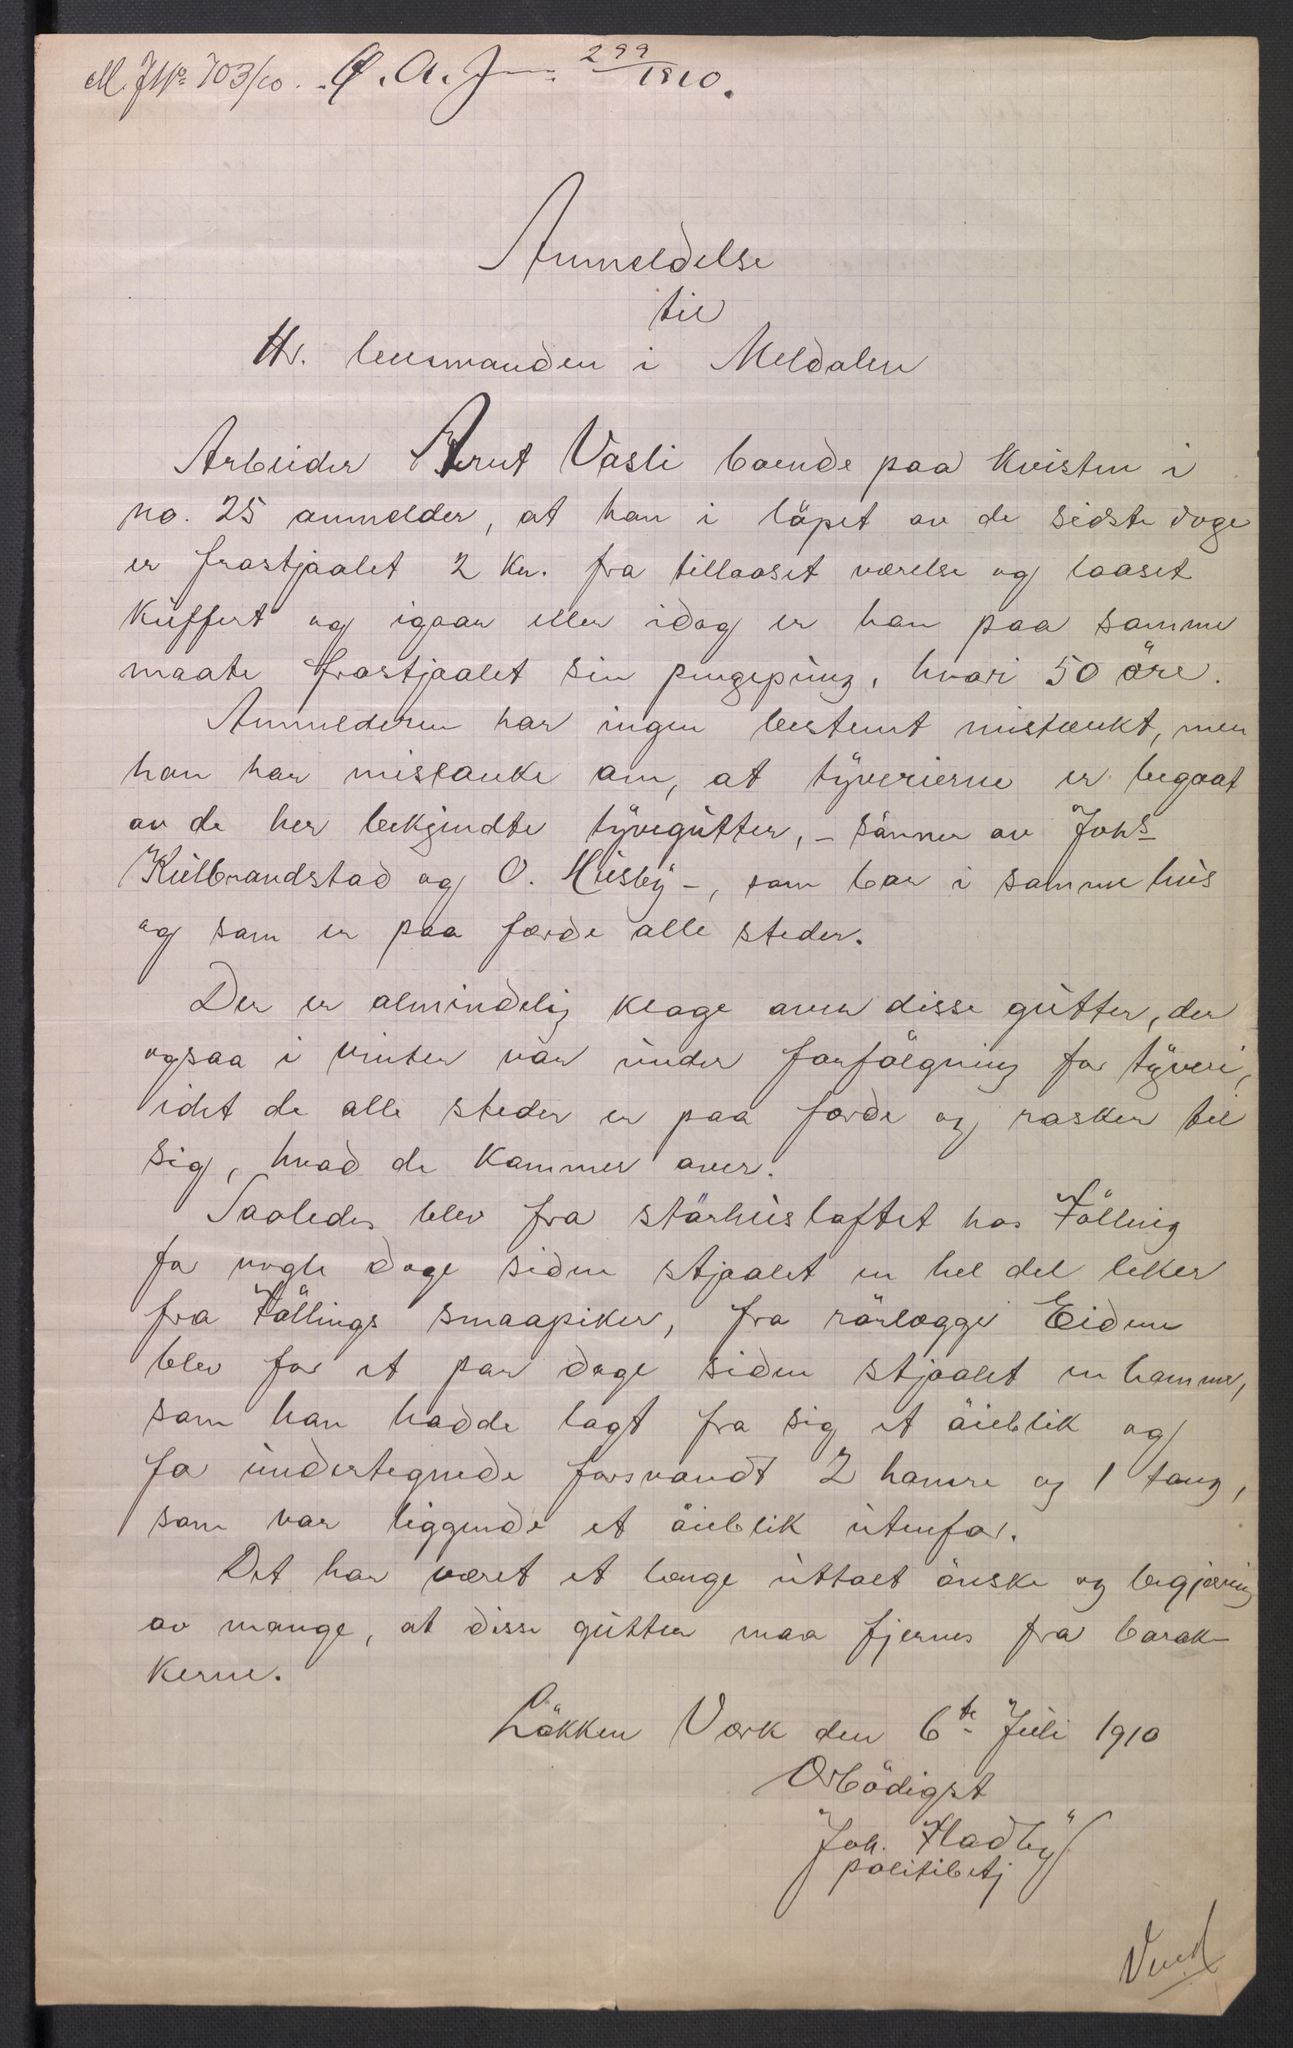 M. J№ 703/10. O. A. J. 299/1910.
Anmeldelse
til
Hr. lensmanden i Meldalen
Arbeider Arnt Vasli boende paa kvisten i
no. 25 anmelder, at han i löpet av de sidste dage
er frastjaalet 2 kr. fra tillaaset værelse og laaset
kuffert og igaar eller idag er han paa samme
maate frastjaalet sin pengepung, hvori 50 öre.
Anmelderen har ingen bestemt mistænkt, men
han har mistanke om, at tyverierne er begaat
av de her bekjendte tyvegutter, – sönner av Johs
Kulbrandstad og O. Husby –, som bor i samme hus
og som er paa færde alle steder.
Der er almindelig klage over disse gutter, der
ogsaa i vinter var under forfölgning for tyveri,
idet de alle steder er paa færde og rasker til
sig, hvad de kommer over.
Saaledes blev fra störhusloftet hos Fölling
for nogle dage siden stjaalet en hel del leker
fra Föllings smaapiker, fra rörlægger Eidem
blev for et par dage siden stjaalet en hammer,
som han hadde lagt fra sig et öieblik og
for undertegnede forsvandt 2 hamre og 1 tang,
som var liggende et öieblik utenfor.
Det har været et længe uttalt önske og begjæring
av mange, at disse gutter maa fjernes fra barak-
kerne.
Lökken Verk den 6te Juli 1910
Ærbödigst
Joh. Fladby
politibetj
Vend